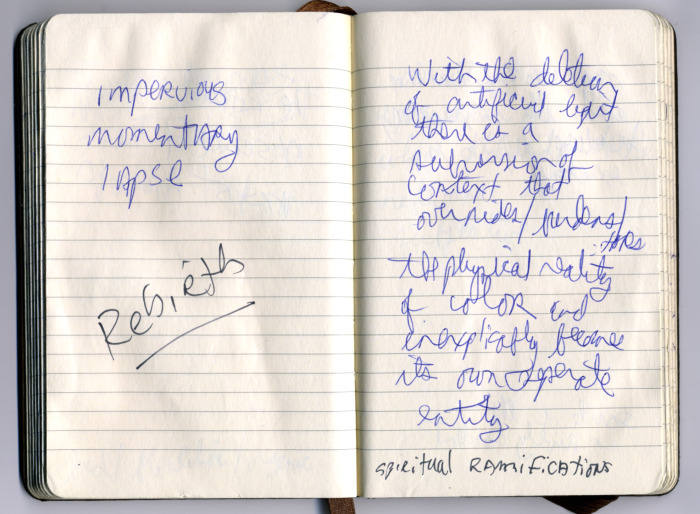 impervious
momentary
lapse
Rebirth
With the deletion
of artificial light
there is a
subversion of
context that
overrides/
the physical reality
of color and
inexplicably became
its own seperate
entity
spiritual RAmificAtions